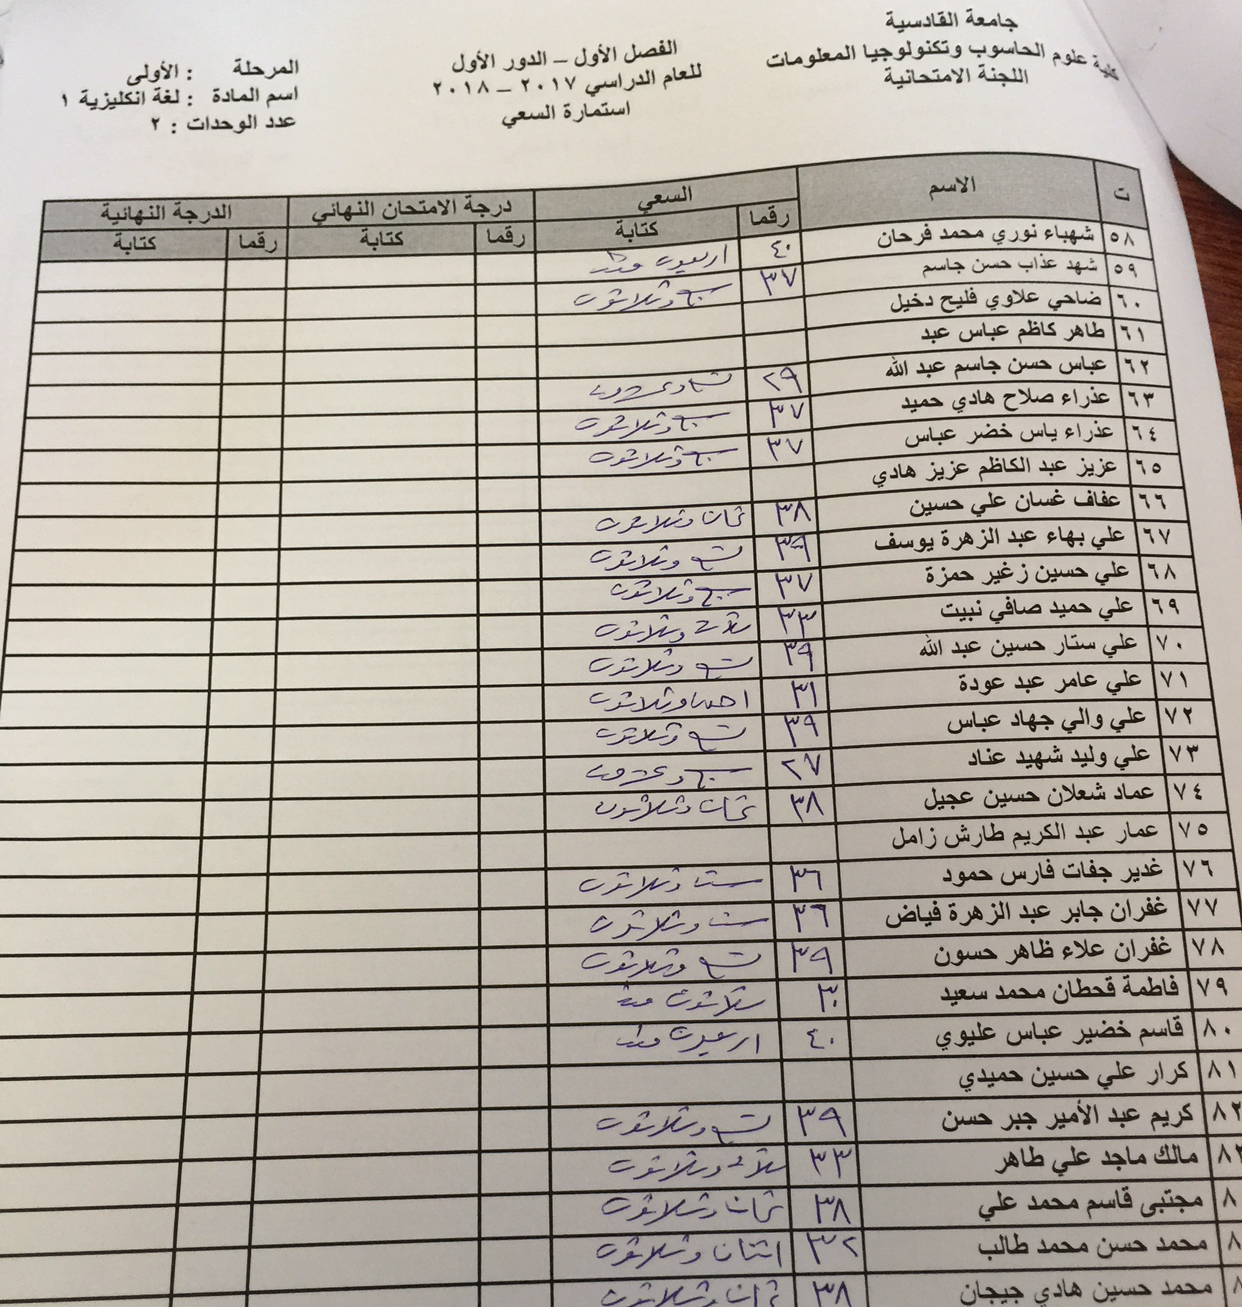 جامعة القادسية
كلية علوم الحاسوب وتكنولوجيا المعلومات
اللجنة الامتحانية
الفصل الأول – الدور الأول
للعام الدراسي ٢٠١٧ – ٢٠١٨
استمارة السعي
المرحلة : الأولى
اسم المادة : لغة انكليزية ١
عدد الوحدات : ٢
ت الاسم السعي درجة الامتحان النهائي الدرجة النهائية
رقما كتابة رقما كتابة رقما كتابة
٥٨ شهباء نوري محمد فرحان ٤٠ اربعون فقط
٥٩ شهد عذاب حسن جاسم ٣٧ سبع وثلاثون
٦٠ ضاحي علاوي فليح دخيل
٦١ طاهر كاظم عباس عبد
٦٢ عباس حسن جاسم عبد الله ٢٩ تسع وعشرون
٦٣ عذراء صلاح هادي حميد ٣٧ سبع وثلاثون
٦٤ عذراء ياس خضر عباس ٣٧ سبع وثلاثون
٦٥ عزيز عبد الكاظم عزيز هادي
٦٦ عفاف غسان علي حسين ٣٨ ثمان وثلاثون
٦٧ علي بهاء عبد الزهرة يوسف ٣٩ تسع وثلاثون
٦٨ علي حسين زغير حمزة ٣٧ سبع وثلاثون
٦٩ علي حميد صافي نبيت ٣٣ ثلاث وثلاثون
٧٠ علي ستار حسين عبد الله ٣٩ تسع وثلاثون
٧١ علي عامر عبد عودة ٣١ احدى وثلاثون
٧٢ علي والي جهاد عباس ٣٩ تسع وثلاثون
٧٣ علي وليد شهيد عناد ٢٧ سبع وعشرون
٧٤ عماد شعلان حسين عجيل ٣٨ ثمان وثلاثون
٧٥ عمار عبد الكريم طارش زامل
٧٦ غدير جفات فارس حمود ٣٦ ست وثلاثون
٧٧ غفران جابر عبد الزهرة فياض ٣٦ ست وثلاثون
٧٨ غفران علاء ظاهر حسون ٣٩ تسع وثلاثون
٧٩ فاطمة قحطان محمد سعيد ٣٠ ثلاثون فقط
٨٠ قاسم خضير عباس عليوي ٤٠ اربعون فقط
٨١ كرار علي حسين حميدي
٨٢ كريم عبد الأمير جبر حسن ٣٩ تسع وثلاثون
٨٣ مالك ماجد علي طاهر ٣٣ ثلاث وثلاثون
٨ مجتبى قاسم محمد علي ٣٨ ثمان وثلاثون
٨ محمد حسن محمد طالب ٣٢ اثنان وثلاثون
٨ محمد حسين هادي جيجان ٣٨ ثمان وثلاثون